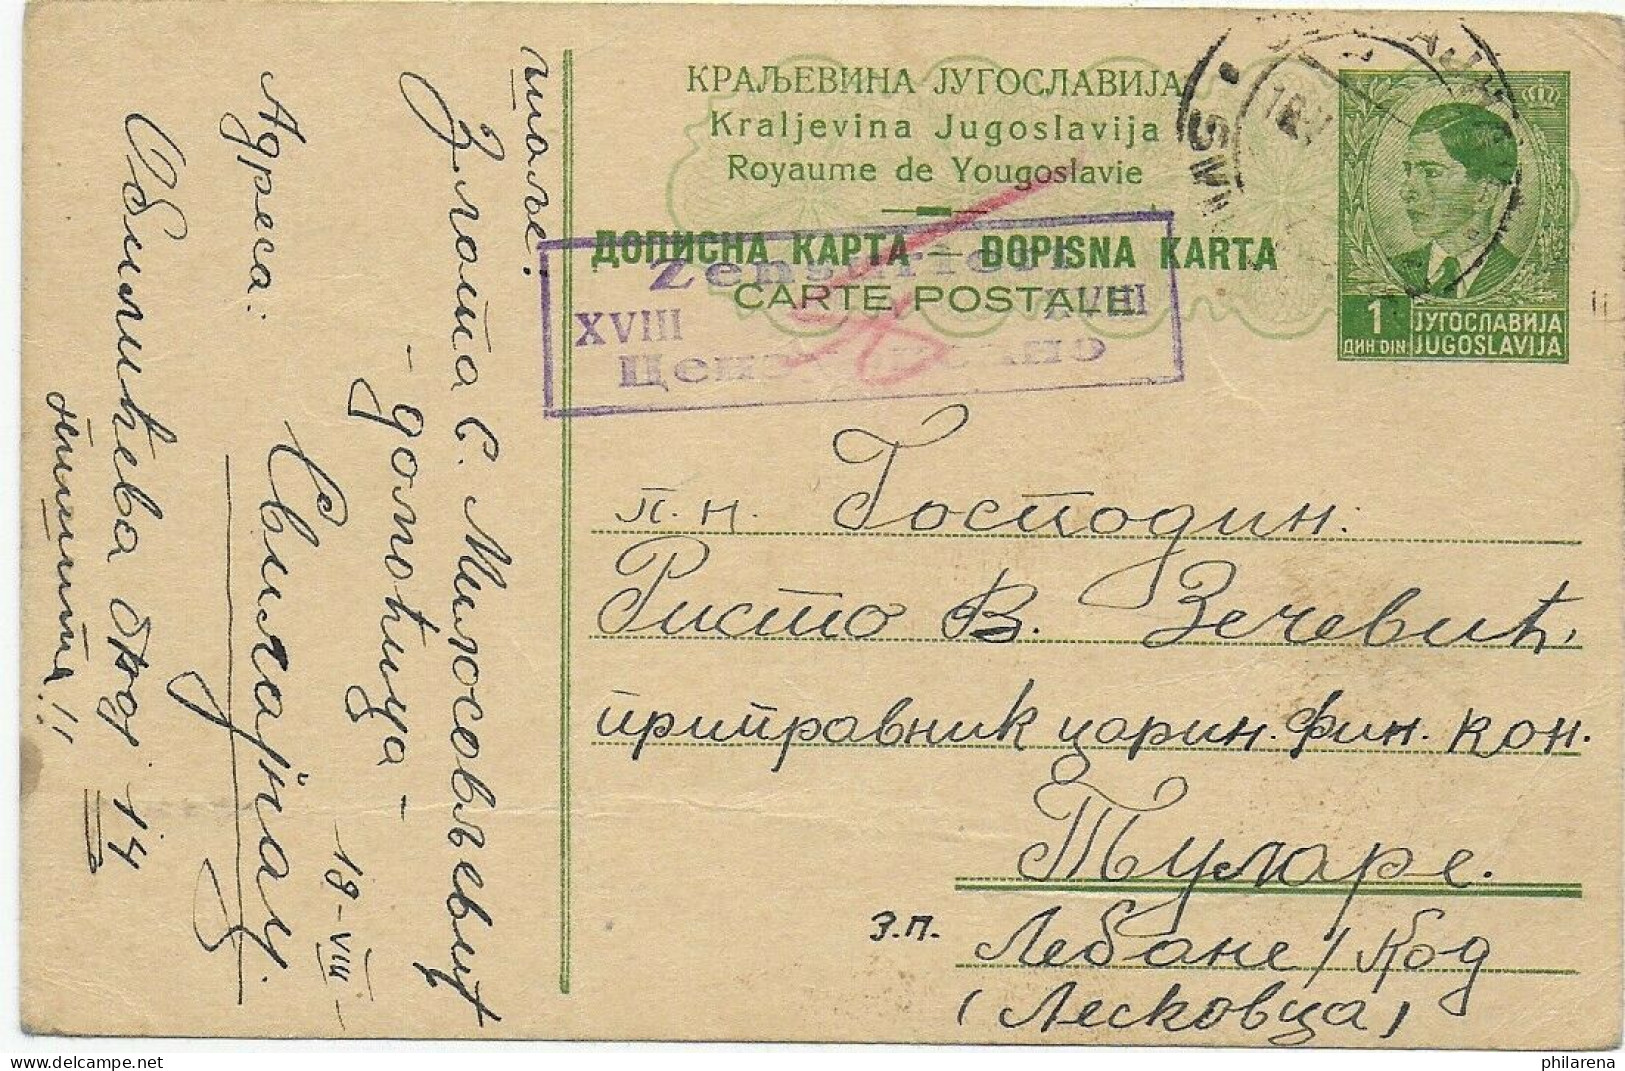 КРАЉЕВИНА ЈУГОСЛАВИЈА
Kraljevina Jugoslavija
Royaume de Yougoslavie
ДОПИСНА КАРТА – DOPISNA KARTA
CARTE POSTALE
Zensuriert
XVIII XVIII
1
ДИН DIN
ЈУГОСЛАВИЈА
JUGOSLAVIJA
п.н. Господин:
Ристо В. Зечевић,
приправник царин. фин. кон.
Туларе.
з.п. Лебане / код
(Лесковца)
шаље:
Злата С. Милосављевић
- домаћица -
19-VIII-
Адреса:
Свилајнац.
Обилићева број 14
philarena